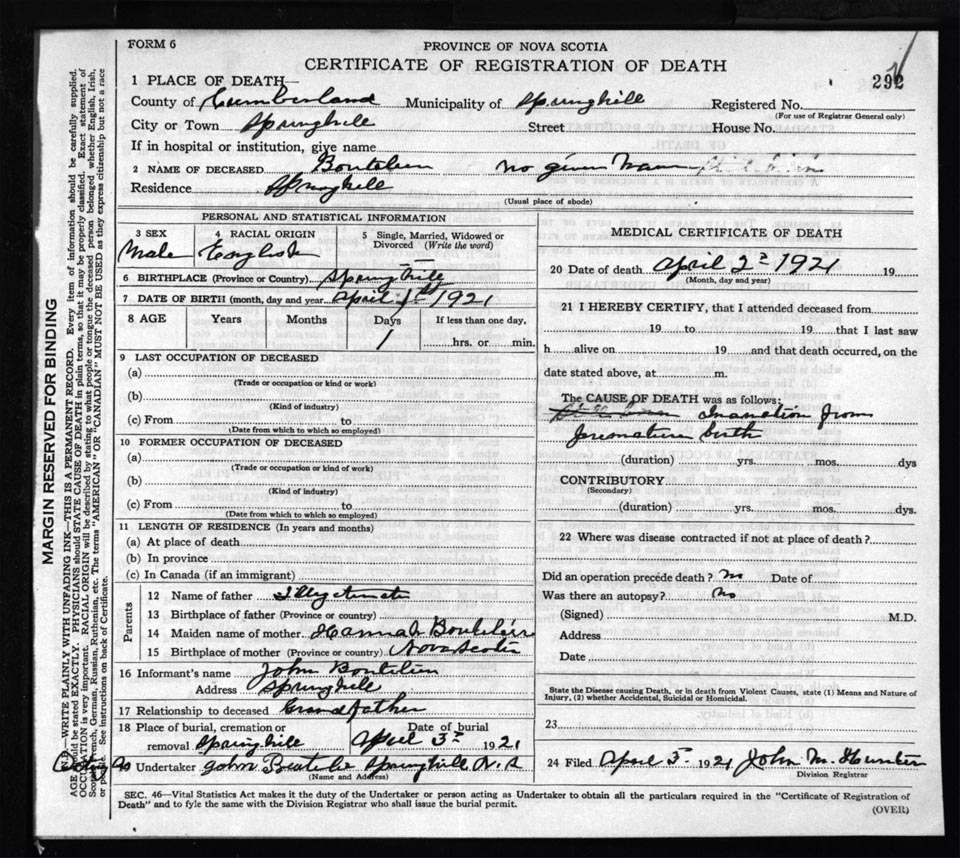 FORM 6
PROVINCE OF NOVA SCOTIA
CERTIFICATE OF REGISTRATION OF DEATH
292
1 PLACE OF DEATH—
County of Cumberland Municipality of Springhill Registered No.
(For use of Registrar General only)
City or Town Springhill Street House No.
If in hospital or institution, give name
2 NAME OF DECEASED Boutelier no given name
Residence Springhill
(Usual place of abode)
PERSONAL AND STATISTICAL INFORMATION
3 SEX Male
4 RACIAL ORIGIN English
5 Single, Married, Widowed or Divorced (Write the word) —
6 BIRTHPLACE (Province or Country) Springhill
7 DATE OF BIRTH (month, day and year April 1st 1921
8 AGE Years Months Days 1 If less than one day, hrs. or min.
9 LAST OCCUPATION OF DECEASED
(a)
(Trade or occupation or kind or work)
(b)
(Kind of industry)
(c) From to
(Date from which to which so employed)
10 FORMER OCCUPATION OF DECEASED
(a)
(Trade or occupation or kind of work)
(b)
(Kind of industry)
(c) From to
(Date from which to which so employed)
11 LENGTH OF RESIDENCE (In years and months)
(a) At place of death
(b) In province
(c) In Canada (if an immigrant)
Parents
12 Name of father Illegitimate
13 Birthplace of father (Province or country)
14 Maiden name of mother Hannah Boutelier
15 Birthplace of mother (Province or country) Nova Scotia
16 Informant's name John Boutelier
Address Springhill
17 Relationship to deceased Grandfather
18 Place of burial, cremation or removal Springhill
Date of burial April 3rd 1921
19 Undertaker John Springhill N.S
(Name and Address)
MEDICAL CERTIFICATE OF DEATH
20 Date of death April 2nd 1921 19
(Month, day and year)
21 I HEREBY CERTIFY, that I attended deceased from
19 to 19 that I last saw
h alive on 19 and that death occurred, on the
date stated above, at m.
The CAUSE OF DEATH was as follows:
Inanition from
premature birth
(duration) yrs. mos. dys
CONTRIBUTORY
(Secondary)
(duration) yrs. mos. dys.
22 Where was disease contracted if not at place of death?
Did an operation precede death? No Date of
Was there an autopsy? No
(Signed) M.D.
Address
Date
State the Disease causing Death, or in death from Violent Causes, state (1) Means and Nature of
Injury, (2) whether Accidental, Suicidal or Homicidal.
23
24 Filed April 5th 1921 John M. Hunter
Division Registrar
SEC. 46—Vital Statistics Act makes it the duty of the Undertaker or person acting as Undertaker to obtain all the particulars required in the "Certificate of Registration of
Death" and to fyle the same with the Division Registrar who shall issue the burial permit.
(OVER)
MARGIN RESERVED FOR BINDING
N.B.—WRITE PLAINLY WITH UNFADING INK—THIS IS A PERMANENT RECORD. Every item of information should be carefully supplied.
AGE should be stated EXACTLY. PHYSICIANS should STATE CAUSE OF DEATH in plain terms, so that it may be properly classified. Exact statement of
OCCUPATION is very important. RACIAL ORIGIN will be described by stating to what people or tongue the deceased person belonged whether English, Irish,
Scotch, French, German, Russian, Ruthenian, etc. The terms "AMERICAN" OR "CANADIAN" MUST NOT BE USED as they express citizenship but not a race
or people. See instructions on back of Certificate.